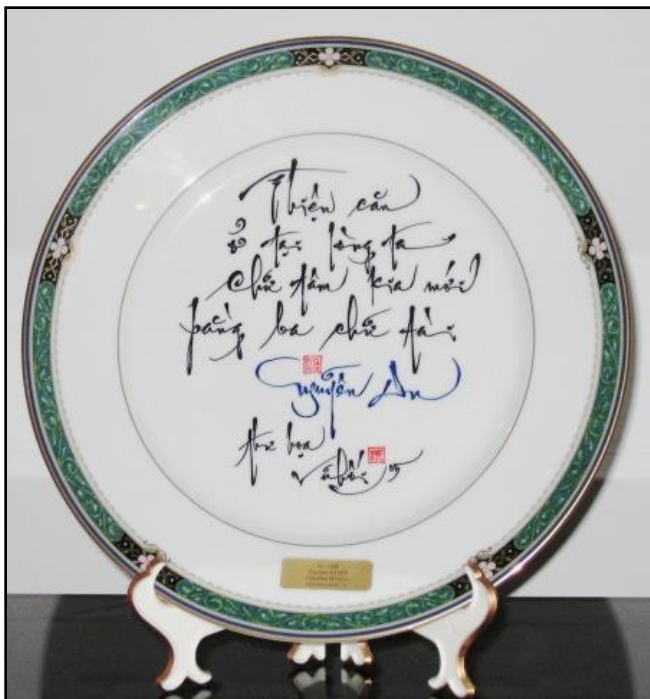 Thiện căn
ở tại lòng ta
chữ tâm kia mới
bằng ba chữ tài
Nguyễn Du
thư họa